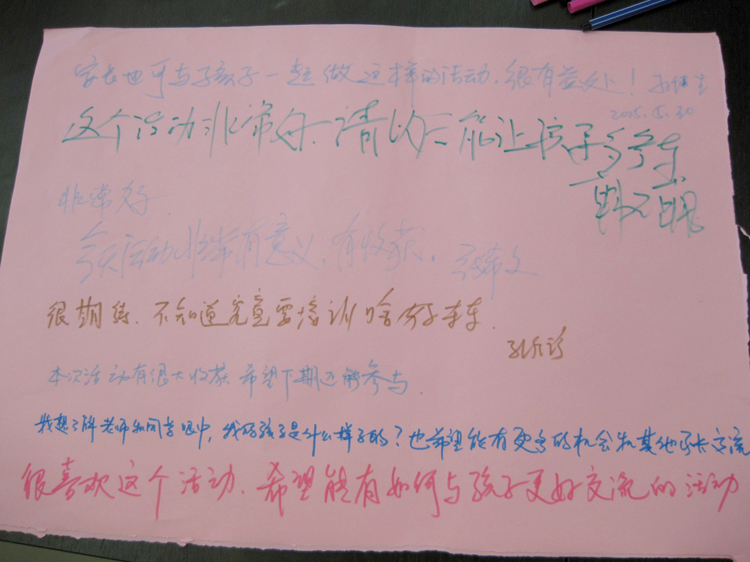 家长也可与孩子一起做这样的活动,很有益处!
2005.5.30
这个活动非常好,请以后能让孩子多参加
非常好
今天活动非常有意义,有收获。
很期待,不知道究竟要培训啥
本次活动有很大收获 希望下期还能参与
我想了解老师和同学眼中,我的孩子是什么样子的?也希望能有更多的机会和其他家长交流
很喜欢这个活动,希望能有如何与孩子更好交流的活动